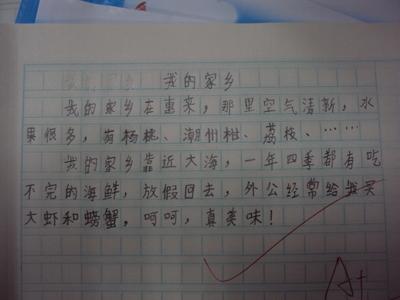 我的家乡
我的家乡在惠来，那里空气清新，水
果很多，有杨桃、潮州柑、荔枝、……
我的家乡靠近大海，一年四季都有吃
不完的海鲜，放假回去，外公经常给我买
大虾和螃蟹，呵呵，真美味！
A+